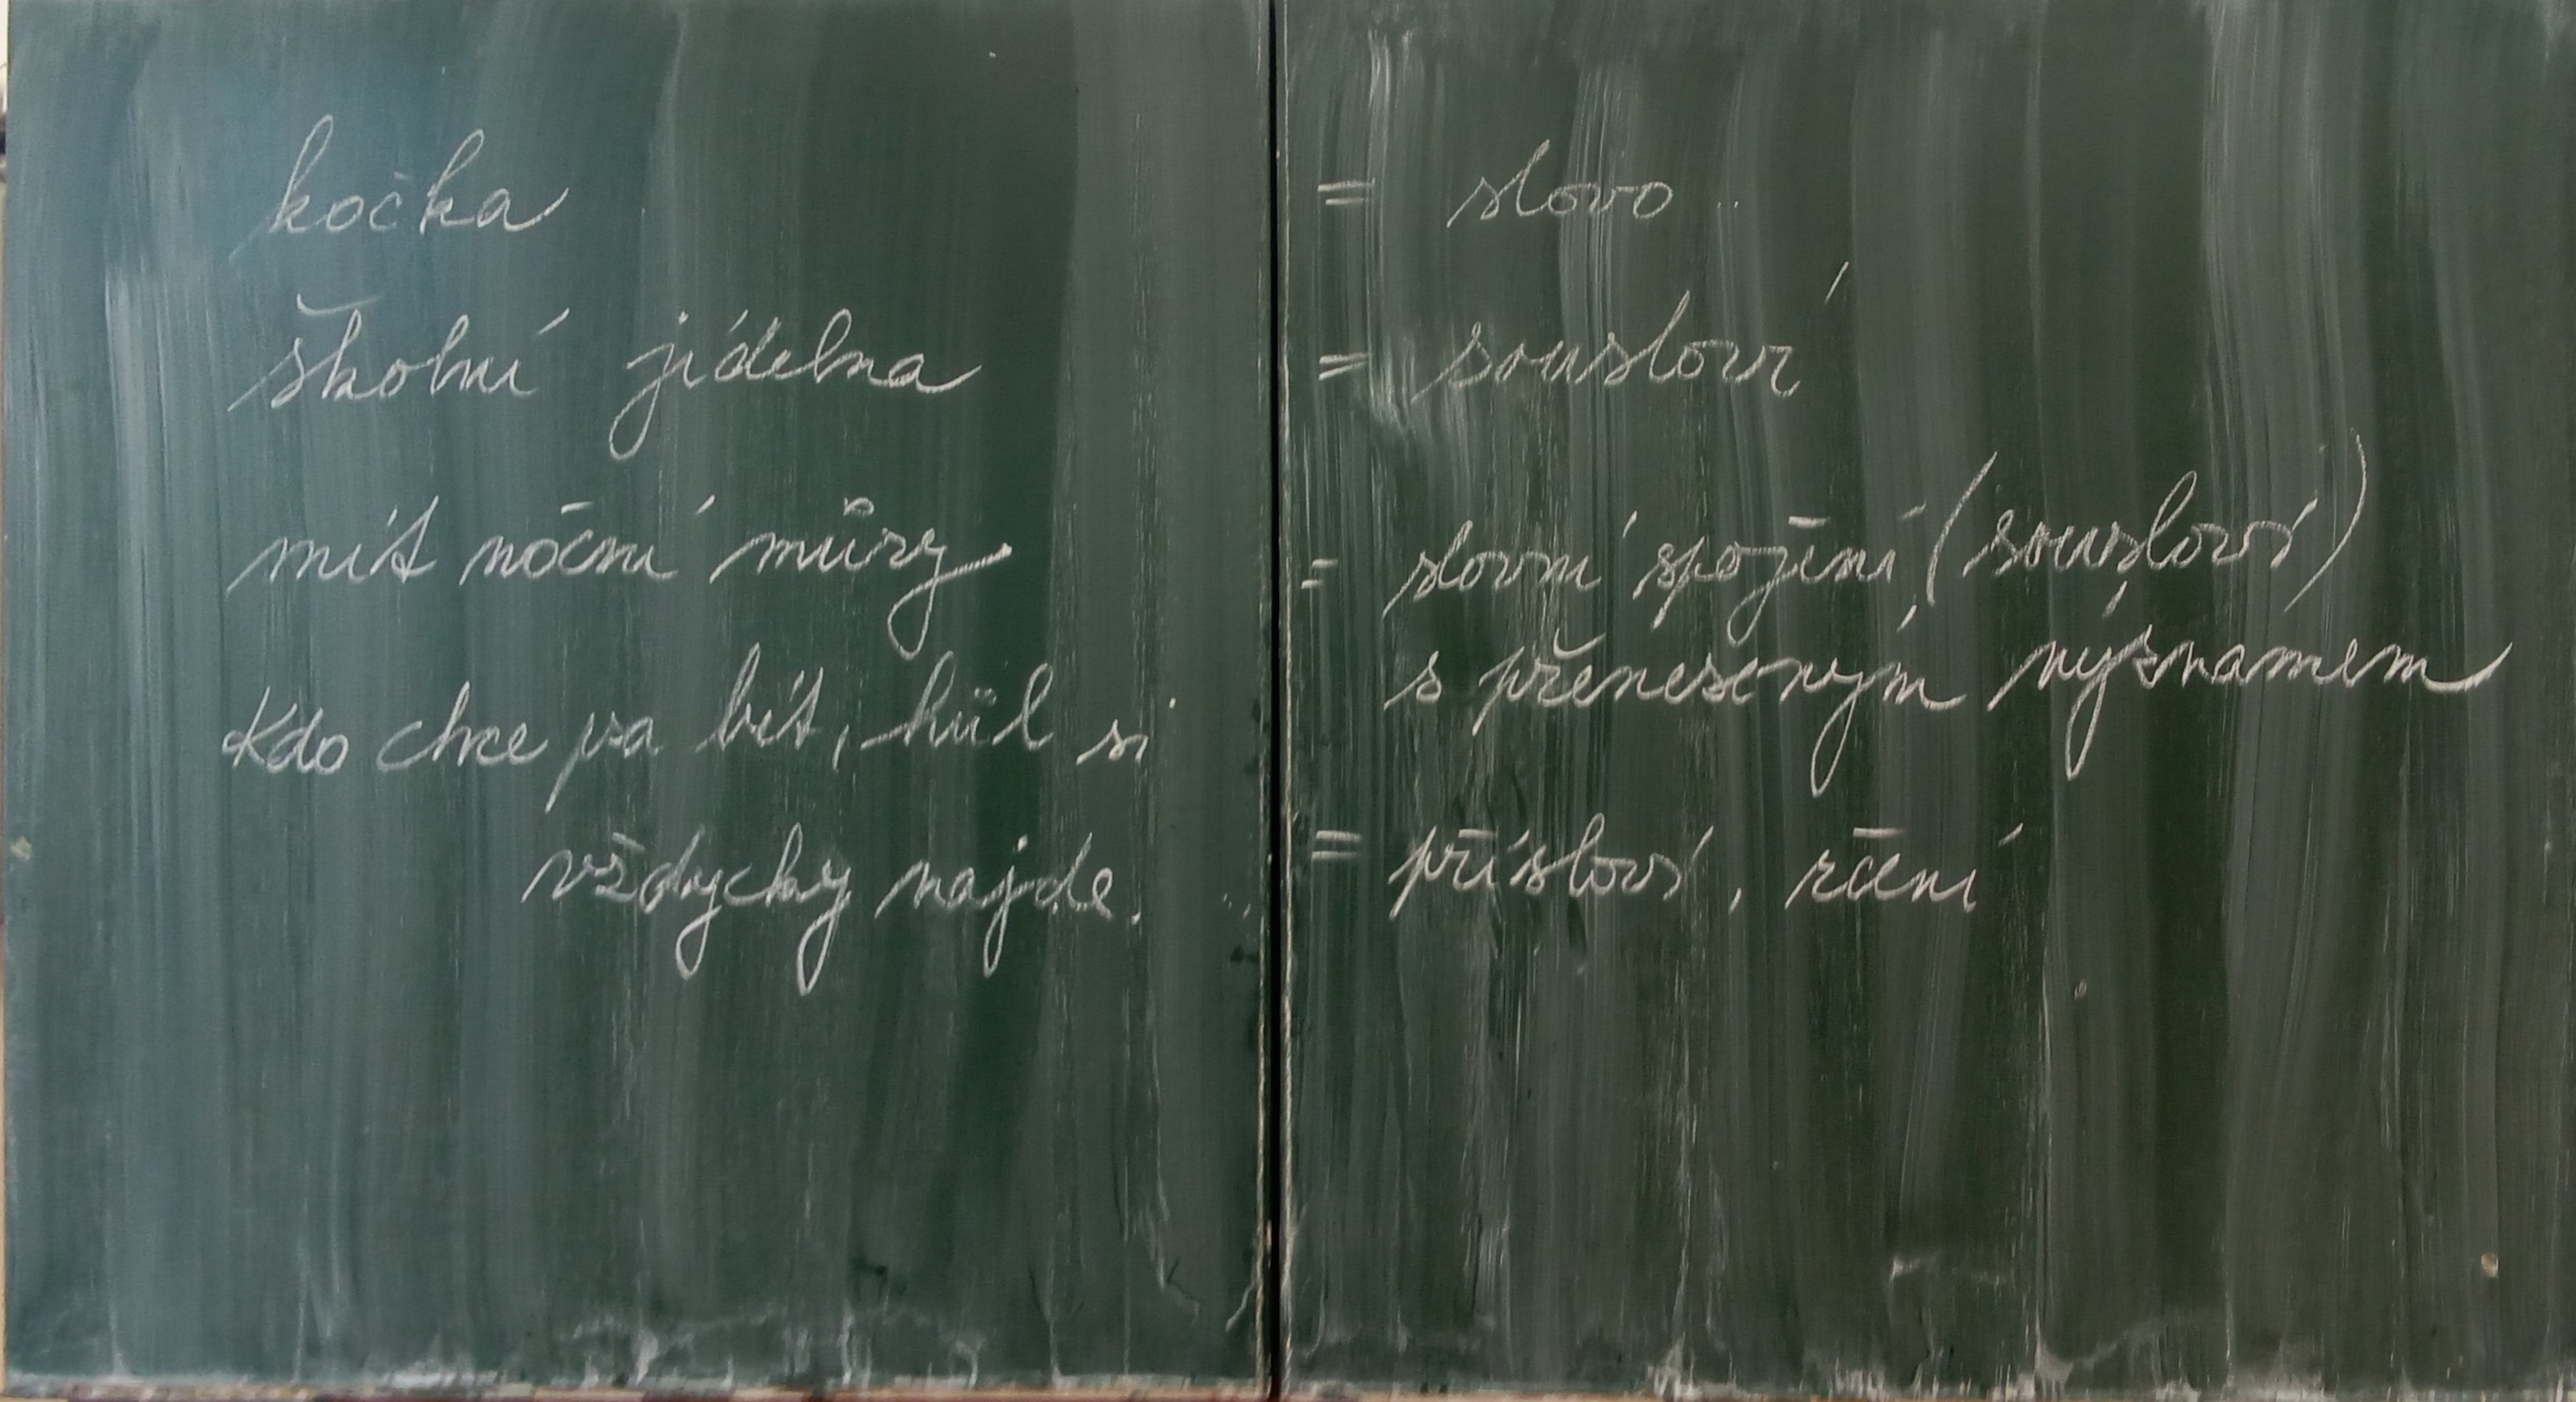 kočka = slovo
školní jídelna = sousloví
mít noční můry = slovní spojení (sousloví)
s přeneseným významem
Kdo chce psa bít, hůl si
vždycky najde. = přísloví, rčení